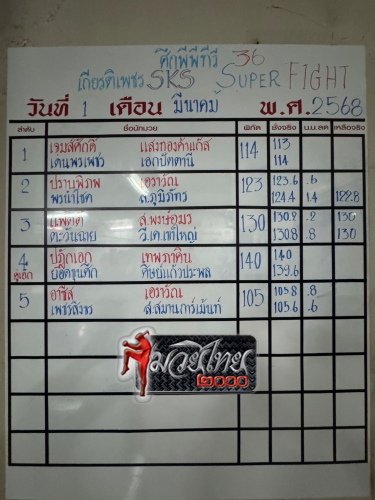 ศึกพีพีทีวี 36
เกียรติเพชร SKS SUPER FIGHT
วันที่ 1 เดือน มีนาคม พ.ศ. 2568
ลำดับ ชื่อนักมวย พิกัด ชั่งจริง น.น.ลด เหลือจริง
1 เจมส์ศักดิ์ แสงทองค้าแก๊ส 114 113
เดนพรเพชร เอกปัตตานี 114
2 ปราบพิภพ เอราวัณ 123 123.6 .6
พรนำโชค ส.ภูมิภัทร 124.4 1.4 122.8
3 130 130.2 .2 130
ตะวันฉาย วี.เค.เขาใหญ่ 130.8 .8 130
4 ปฏักเอก เทพภาคิน 140 140
คู่เอก ยอดขุนศึก ศิษย์แก้วประพล 139.6
5 อาชิส เอราวัณ 105 105.8 .8
เพชรสิงขร ส.สมานการ์เม้นท์ 105.6 .6
มวยไทย
๒๐๐๐